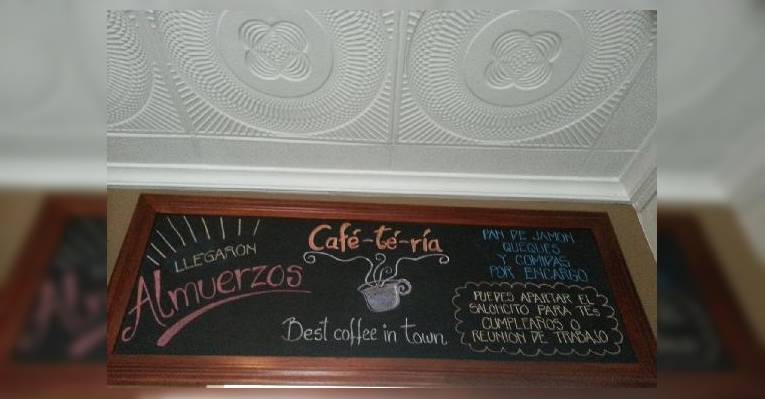 LLEGARON
Almuerzos
Café-té-ría
Best coffee in town
PAN DE JAMON
QUEQUES
Y COMIDAS
POR ENCARGO
PUEDES APARTAR EL
SALONCITO PARA TÉS
CUMPLEAÑOS O
REUNION DE TRABAJO